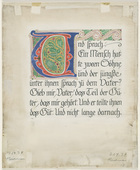 Und sprach
Ein Mensch hat-
te zween Söhne
und der jüngste
unter ihnen sprach zu dem Vater:
Gieb mir, Vater, das Teil der Gü-
ter, das mir gehört. Und er teilte ihnen
das Gut. Und nicht lange darnach,